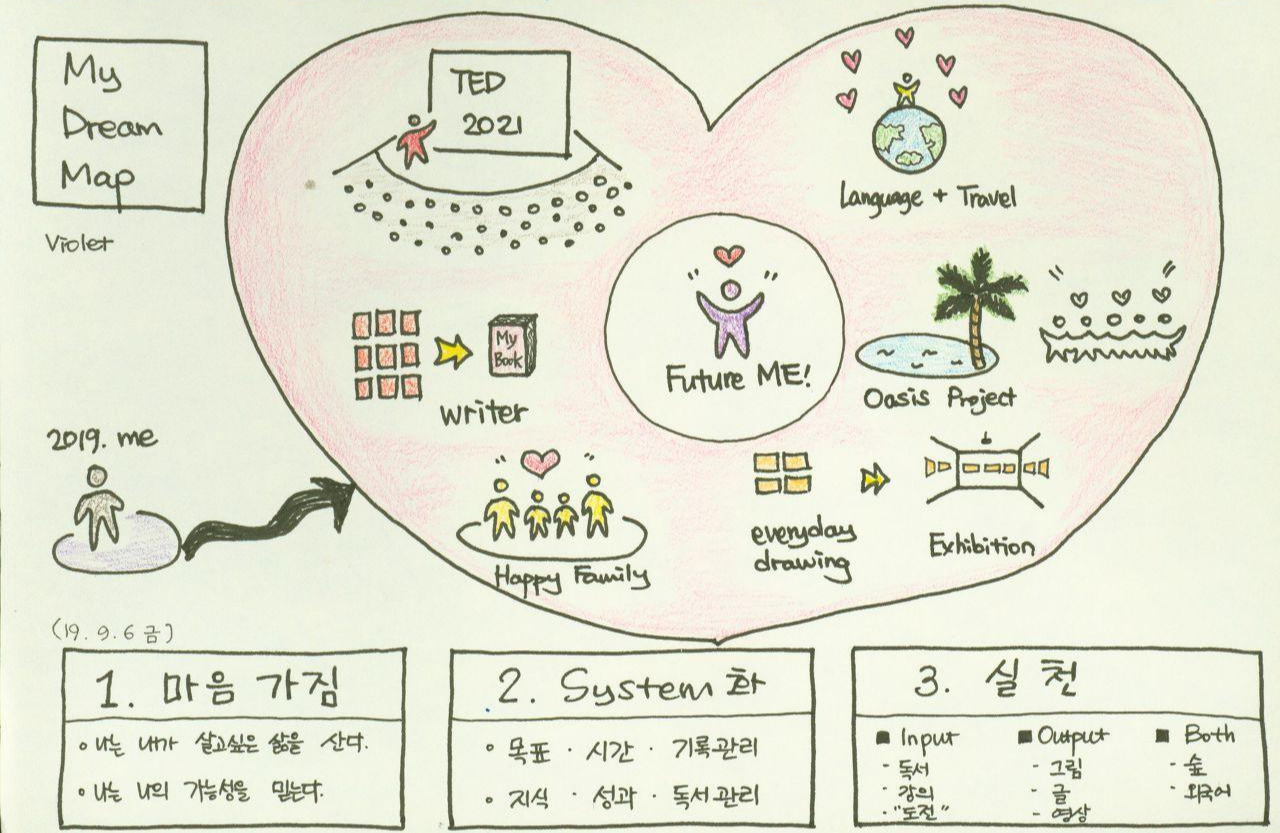 My
Dream
Map
Violet
TED
2021
Language + Travel
My
Book
writer
Future ME!
Oasis Project
2019. me
Happy Family
everyday
drawing
Exhibition
(19. 9. 6 금)
1. 마음 가짐
• 나는 내가 살고싶은 삶을 산다.
• 나는 나의 가능성을 믿는다.
2. System화
• 목표 · 시간 · 기록관리
• 지식 · 성과 · 독서관리
3. 실천
■ Input
- 독서
- 강의
- "도전"
■ Output
- 그림
- 글
- 영상
■ Both
- 숲
- 외국어